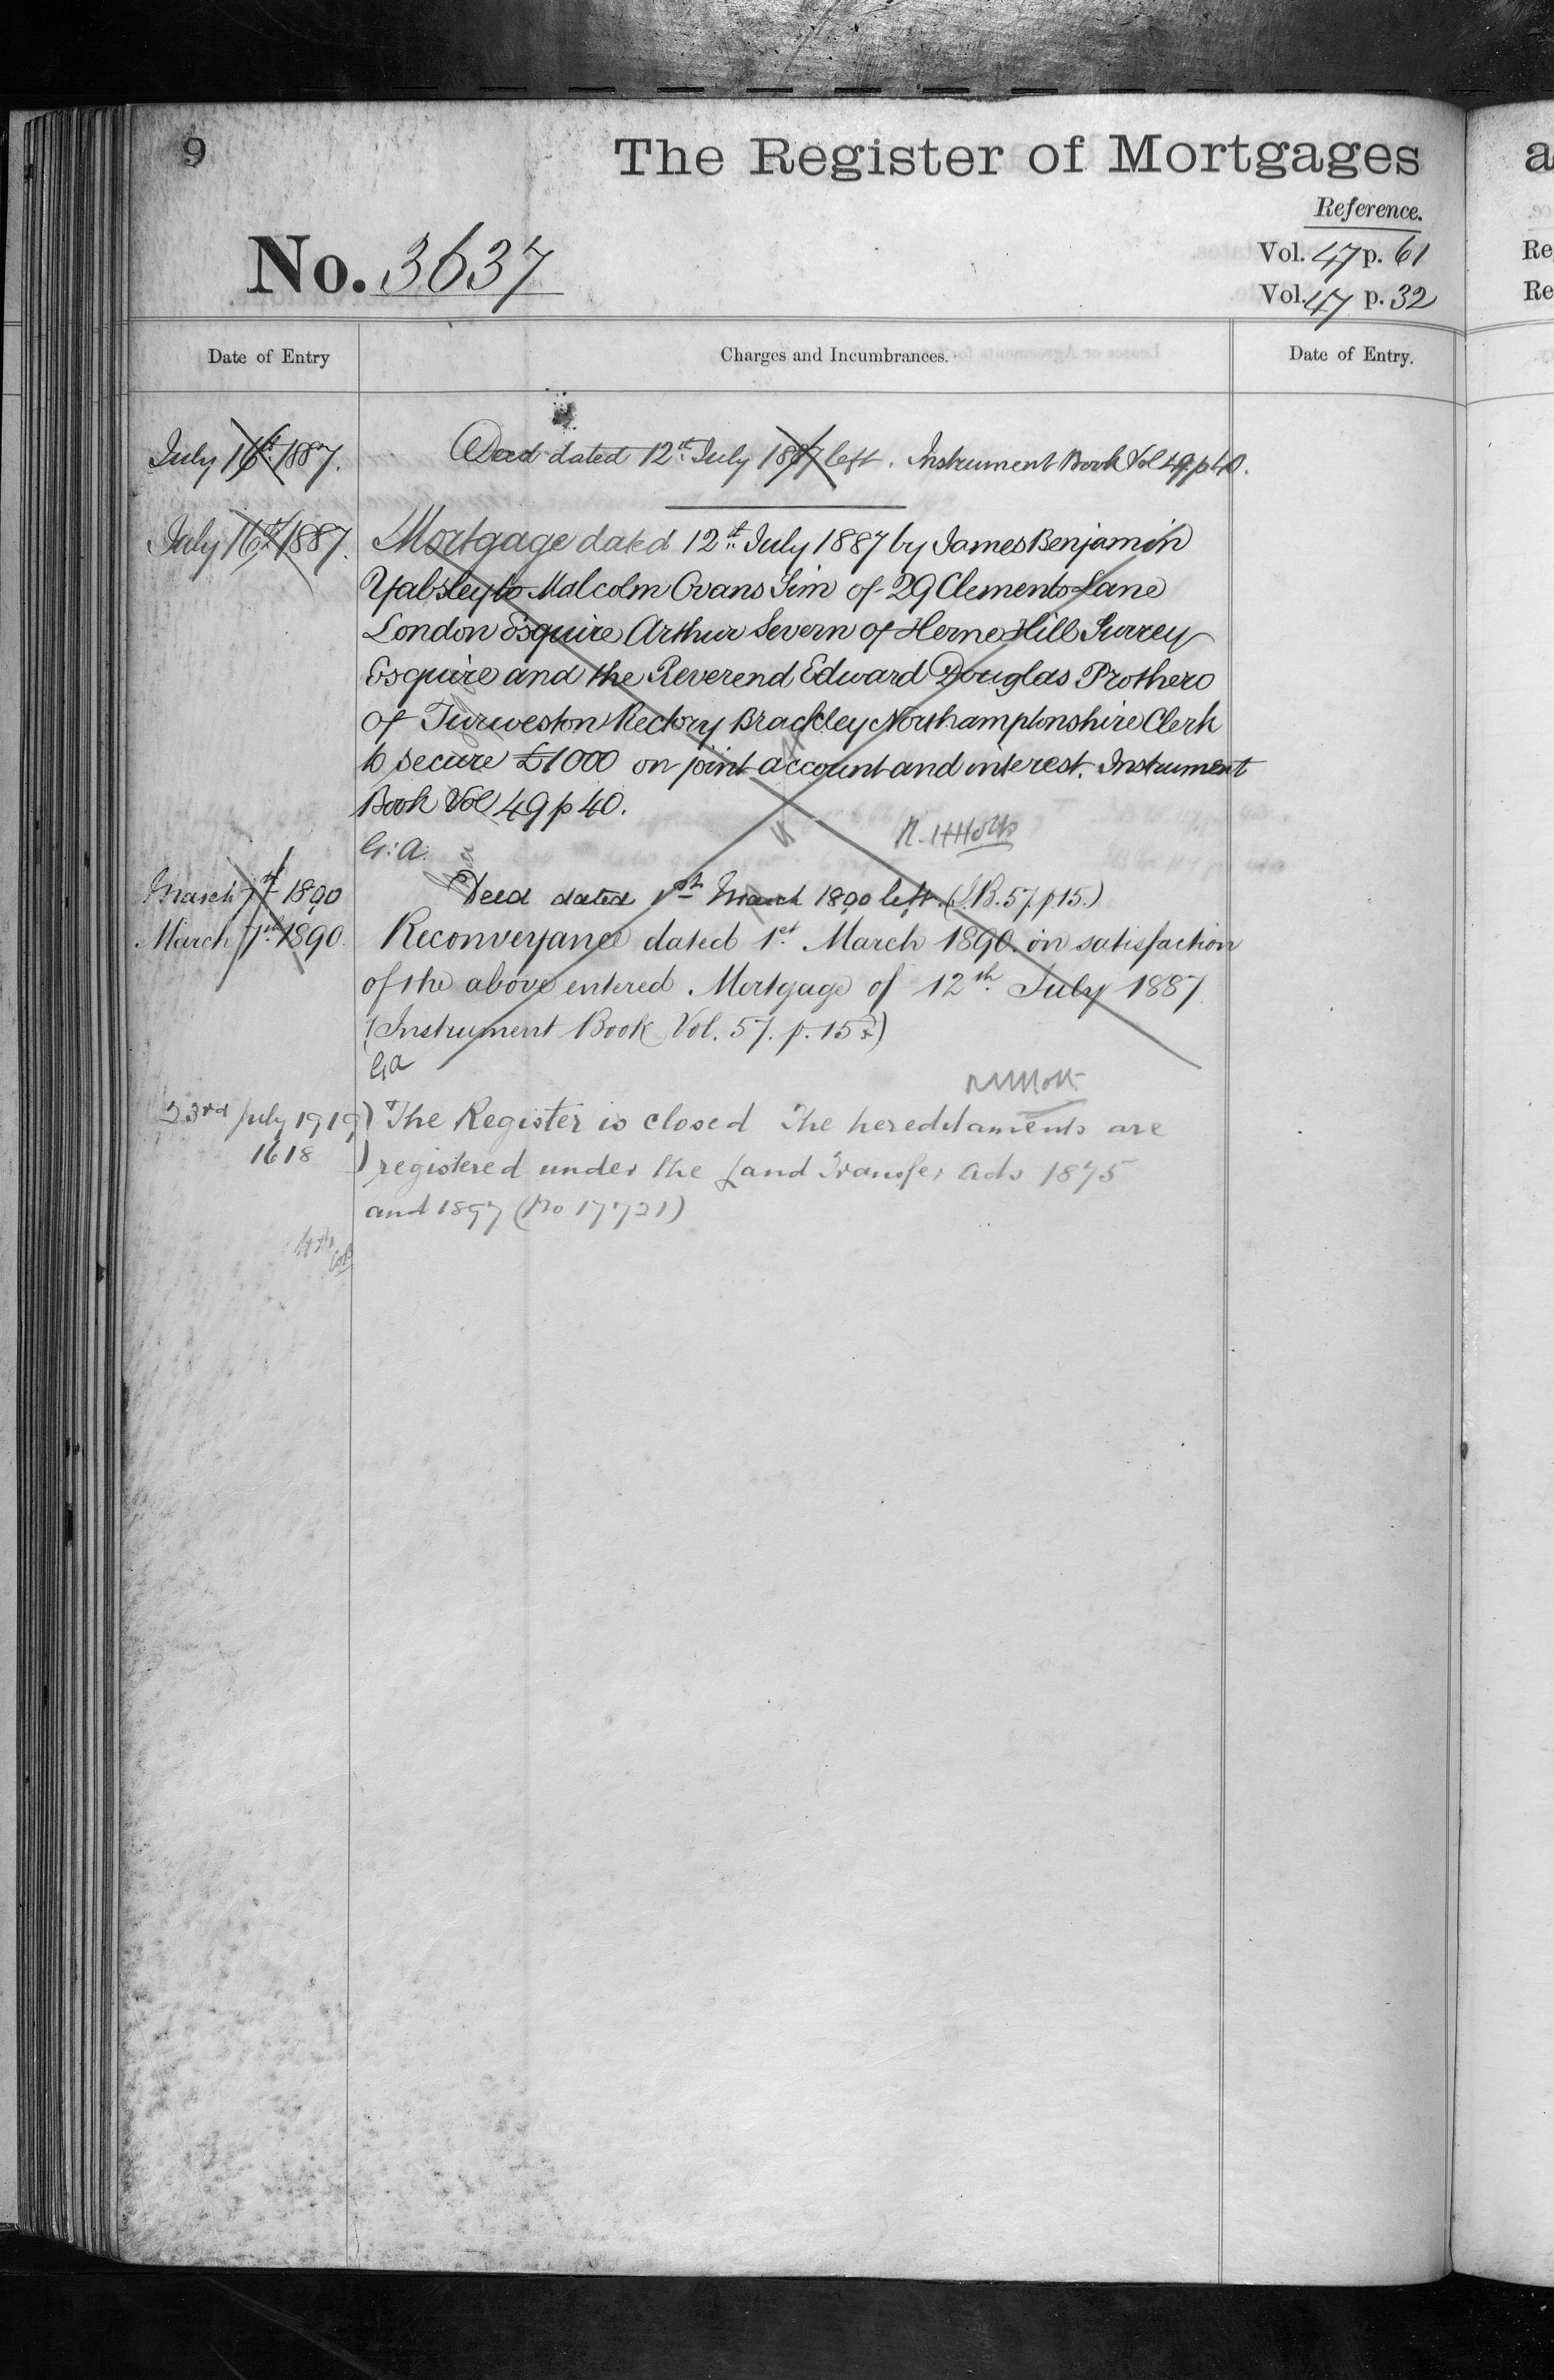 9
The Register of Mortgages
Reference.
No. 3637
Vol. 47 p. 61
Vol. 47 p. 32
Date of Entry
Charges and Incumbrances.
Date of Entry.
July 16th 1887. Deed dated 12th July 1887 left. Instrument Book Vol 49 p 40.
July 16th 1887. Mortgage dated 12th July 1887 by James Benjamin
Yabsley to Malcolm Evans Sim of 29 Clements Lane
London Esquire Arthur Severn of Herne Hill Surrey
Esquire and the Reverend Edward Douglas Prothero
of Turweston Rectory Brackley Northamptonshire Clerk
to secure £1000 on joint account and interest. Instrument
Book Vol 49 p 40.
G: A.
March 7th 1890 Deed dated 1st March 1890 left. (I.B. 57. p. 15.)
March 7th 1890. Reconveyance dated 1st March 1890. in satisfaction
of the above entered Mortgage of 12th July 1887
(Instrument Book Vol. 57. p. 15)
GA
23rd July 1919) The Register is closed The hereditaments are
1618 ) registered under the Land Transfer Acts 1875
and 1897 (No 17721)
a
Re
Re